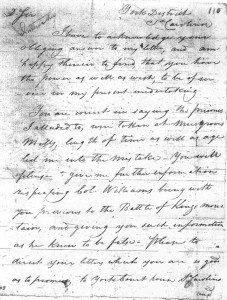 D Sir
York District
So Carolina
116
I have to acknowledge your
obliging answer to my letter, and am
happy therein to find, that you have
the power as well as wish, to be of ser-
vice in my present undertaking
You are correct in saying the prisoners
I alluded to, were taken at Musgroves
Mills, length of time as well as age
led me into the mistake – You will
please to give me further information
respecting Col. Williams being with
you previous to the Battle of Kings moun-
tain, and giving you such information
as he knew to be false – Please to
direct your letters which you are so good
as to promise, to York Court house, S. Carolina
and